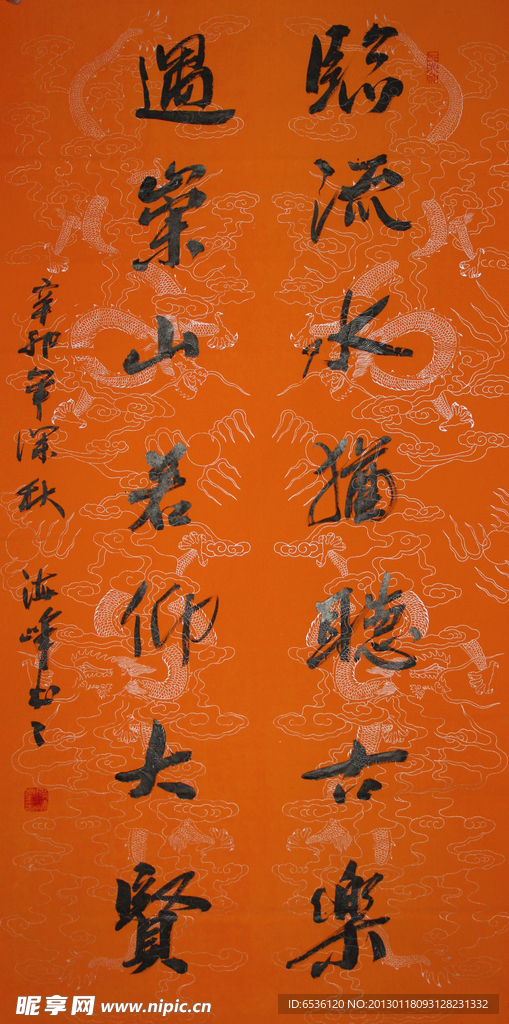 臨流水猶聽古樂
遇崇山若仰大賢
辛卯年深秋 海峰书之
昵享网 www.nipic.cn
ID:6536120 NO:20130118093128231332